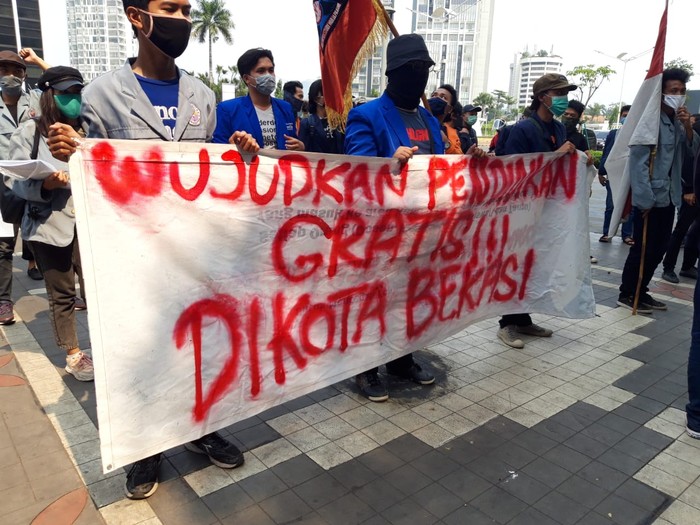 WUJUDKAN PENDIDIKAN
GRATIS!!!
DIKOTA BEKASI